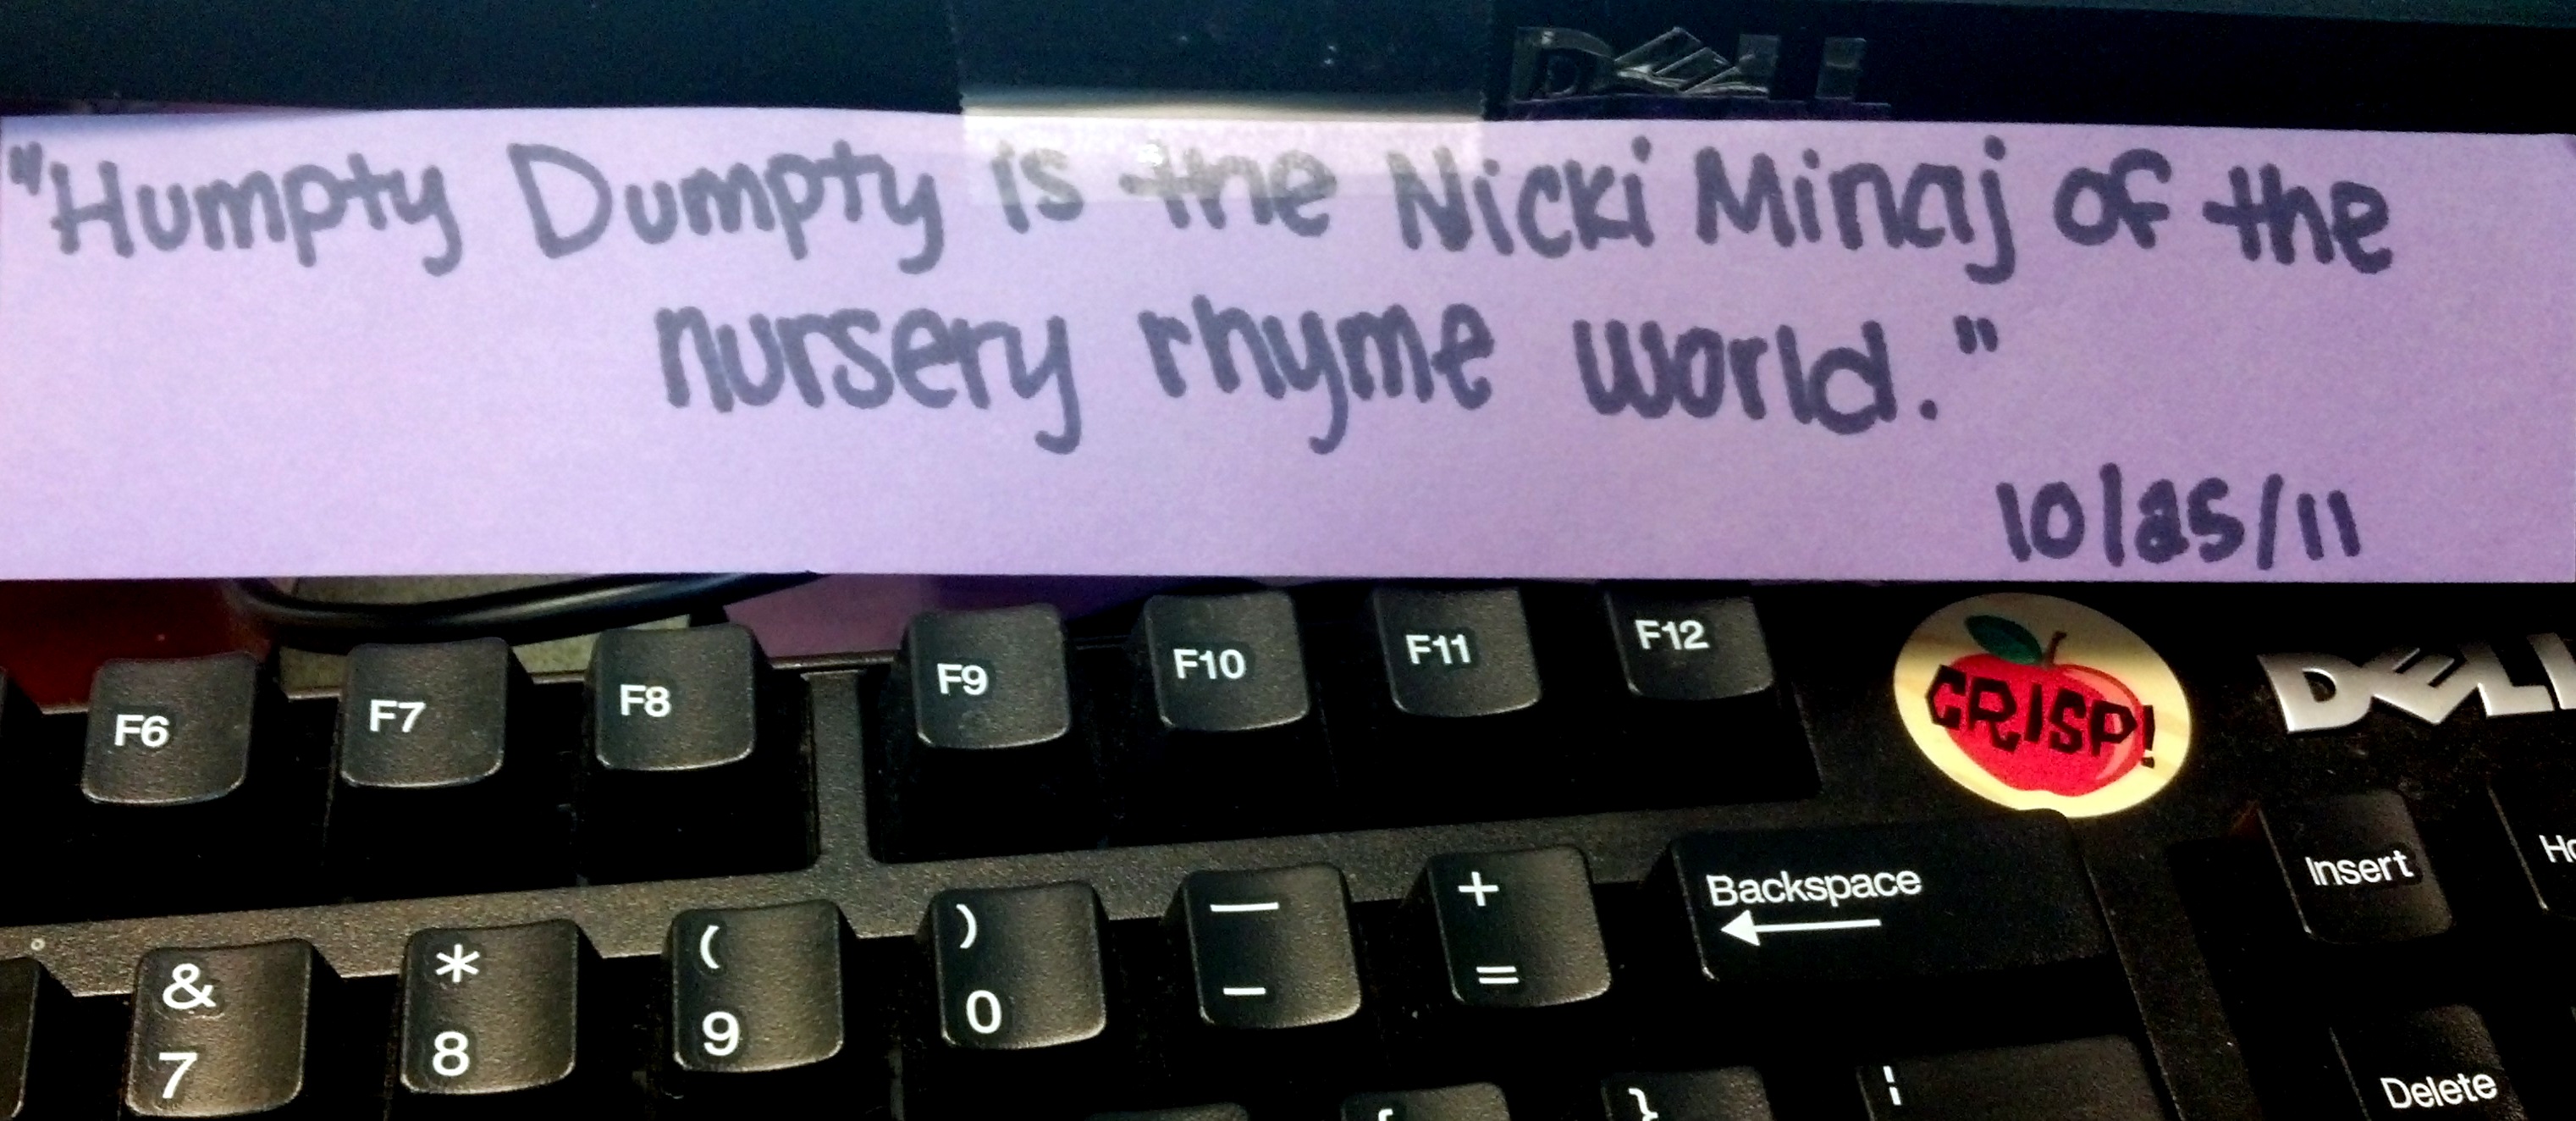 DELL
"Humpty Dumpty is the Nicki Minaj of the
nursery rhyme world."
10/25/11
F6 F7 F8 F9 F10 F11 F12
CRISP!
DELL
& * ( ) — + Backspace Insert
7 8 9 0 - =
{ } ¦ Delete